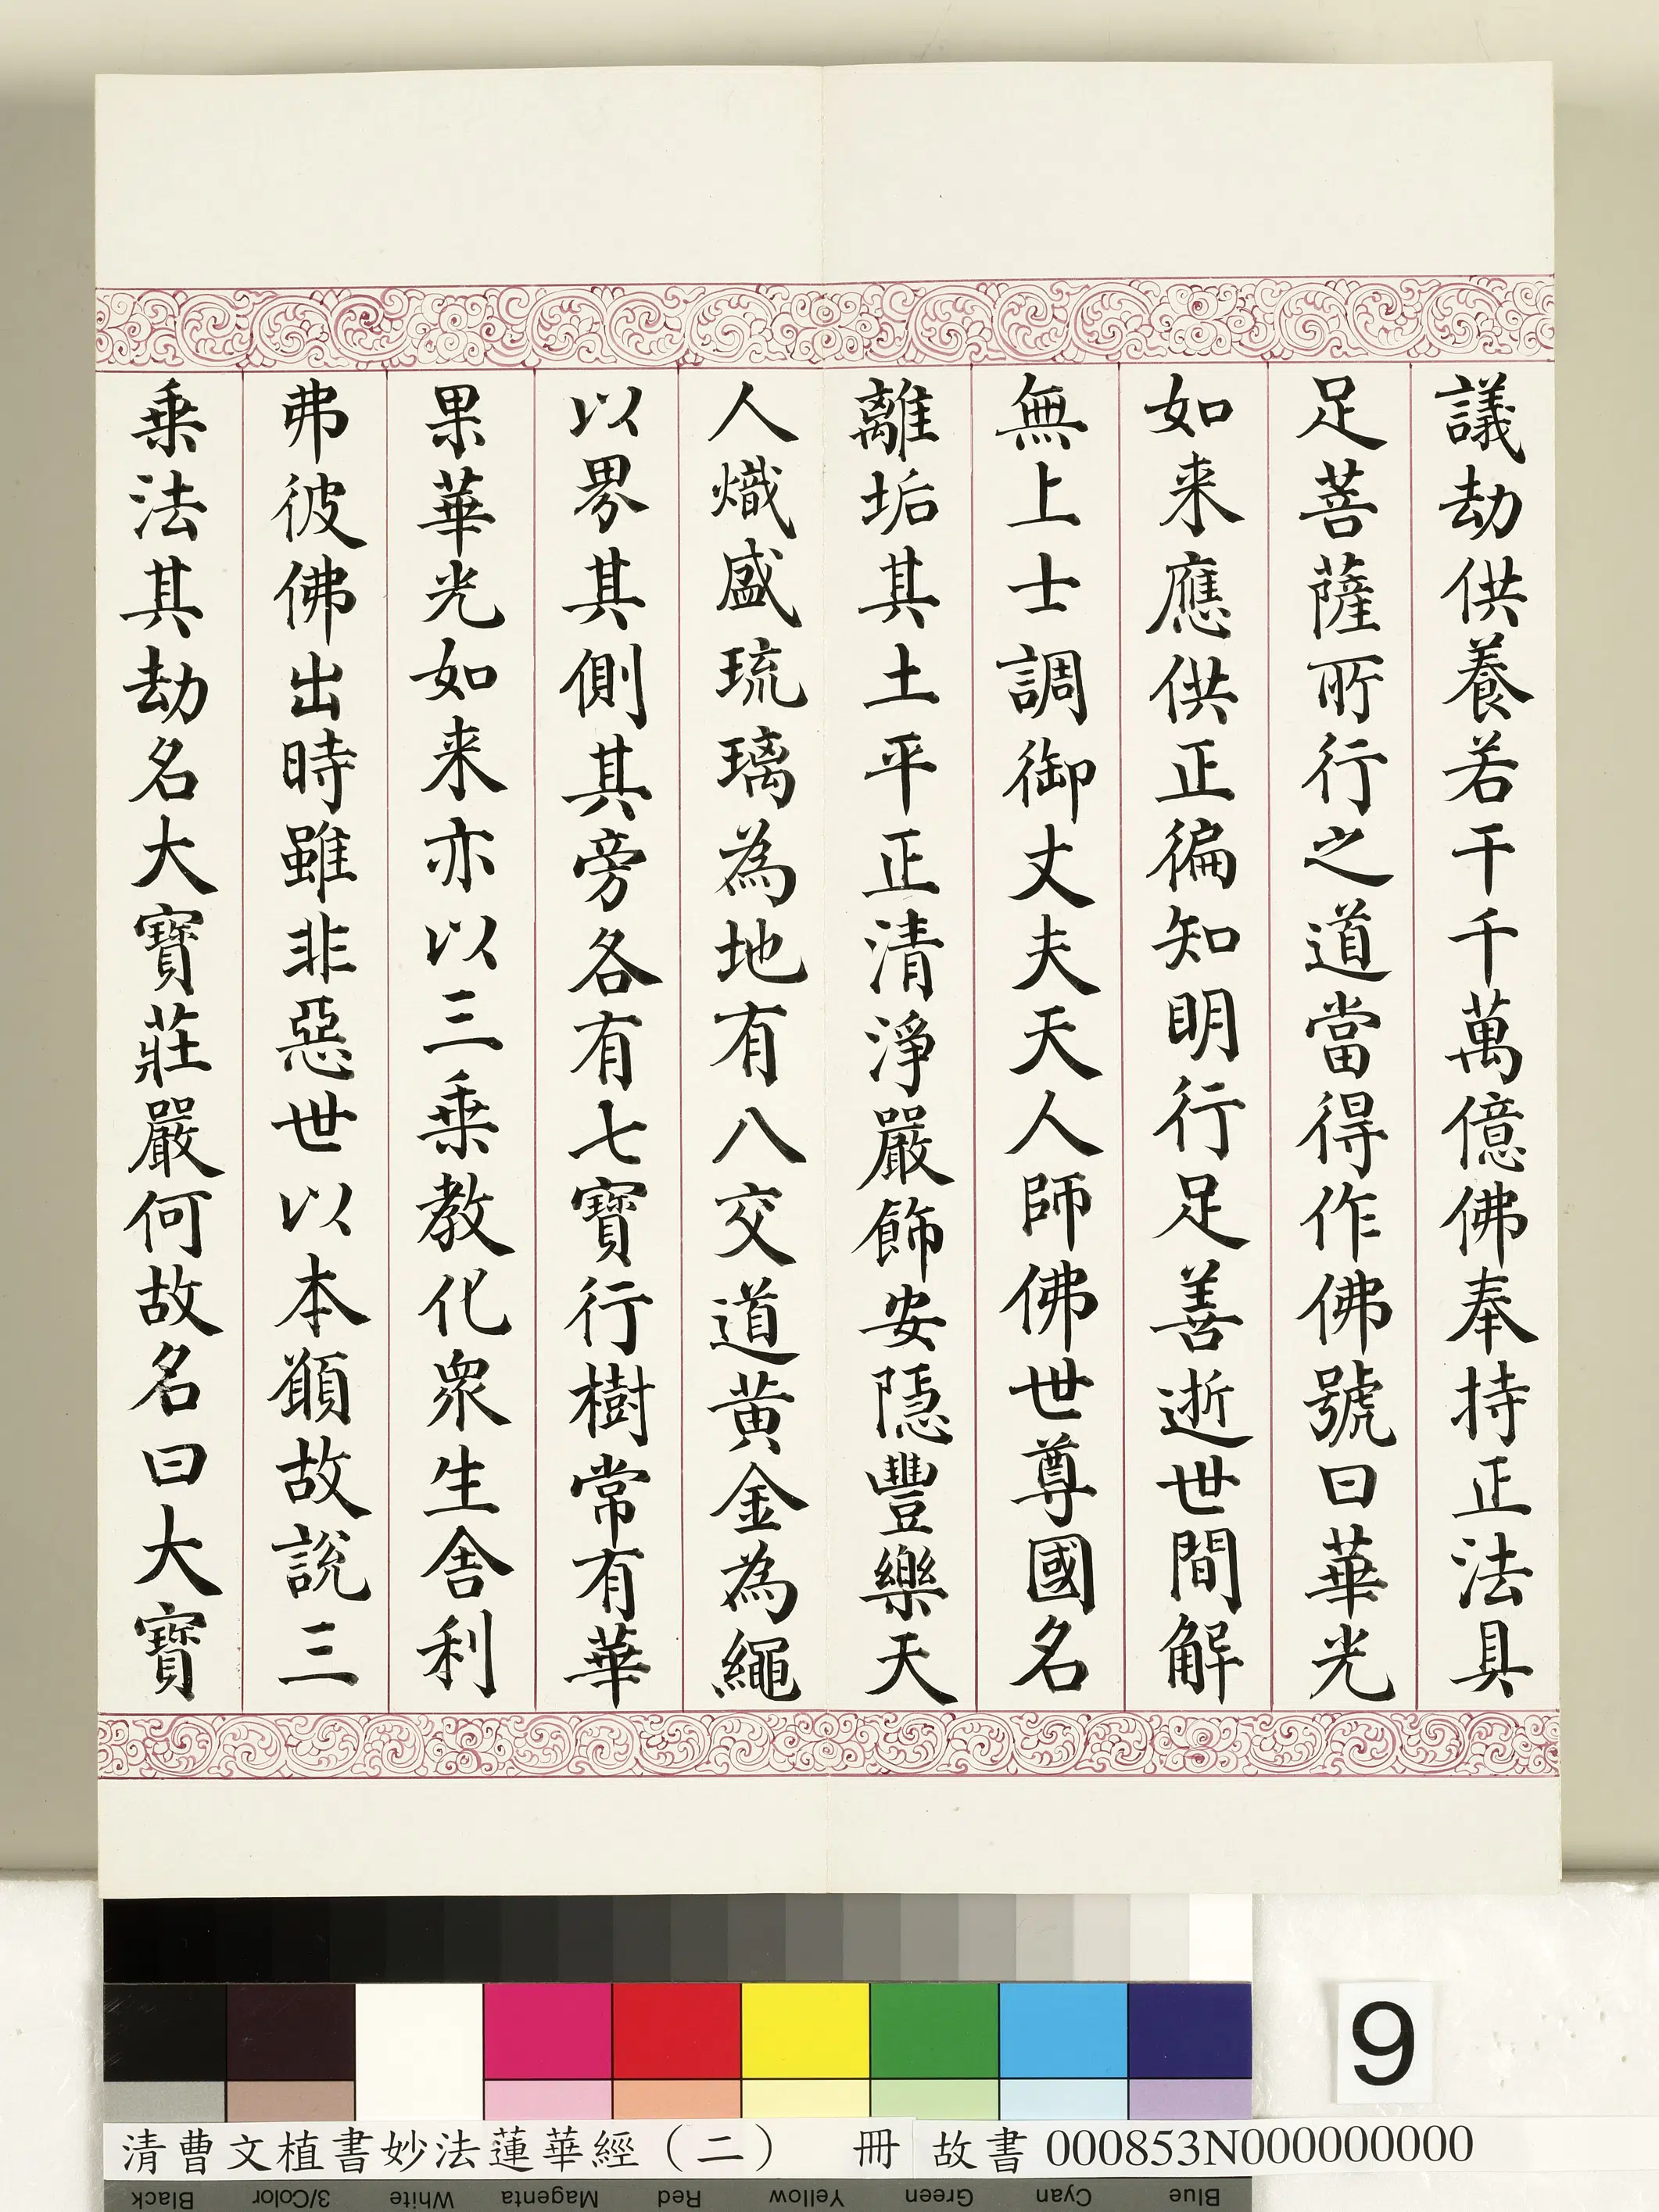 議劫供養若干千萬億佛奉持正法具
足菩薩所行之道當得作佛號曰華光
如来應供正徧知明行足善逝世間解
無上士調御丈夫天人師佛世尊國名
離垢其土平正清淨嚴飾安隱豐樂天
人熾盛琉璃為地有八交道黃金為繩
以界其側其旁各有七寶行樹常有華
果華光如来亦以三乗教化衆生舍利
弗彼佛出時雖非惡世以本願故說三
乗法其劫名大寶莊嚴何故名曰大寶
9
清曹文植書妙法蓮華經（二） 冊 故書 000853N000000000
Black 3/Color White Magenta Red Yellow Green Cyan Blue